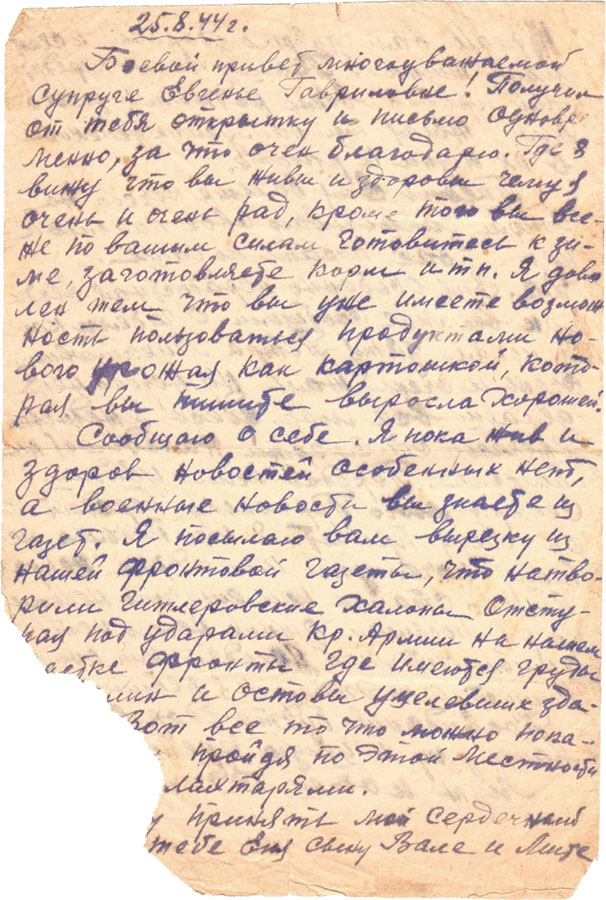 25.8.44 г.
Боевой привет многоуважаемой
супруге Евгенье Гавриловне! Получил
от тебя открытку и письмо одновре
менно, за что очен благодарю. Где я
вижу что вы живы и здоровы чему я
очень и очень рад, кроме того вы все-
же по вашим силам готовитесь к зи-
ме, заготовляете корм и тп. Я дово
лен тем что вы уже имеете возмож
ность пользоваться продуктами но-
вого урожая как картошкой, кото-
рая вы пишите выросла хорошей.
Сообщаю о себе. Я пока жив и
здоров новостей особенных нет,
а военные новости вы знаете из
газет. Я посылаю вам вырезку из
нашей фронтовой газеты, что натво-
рили гитлеровские Отсту-
пая под ударами Кр. Армии на нашем
астке фронта где имеются груды
и остовы уцелевших зда-
Вот все то что можно пока-
пройдя по этой местности
принять мой сердечный
тебе Еня сыну Вале и